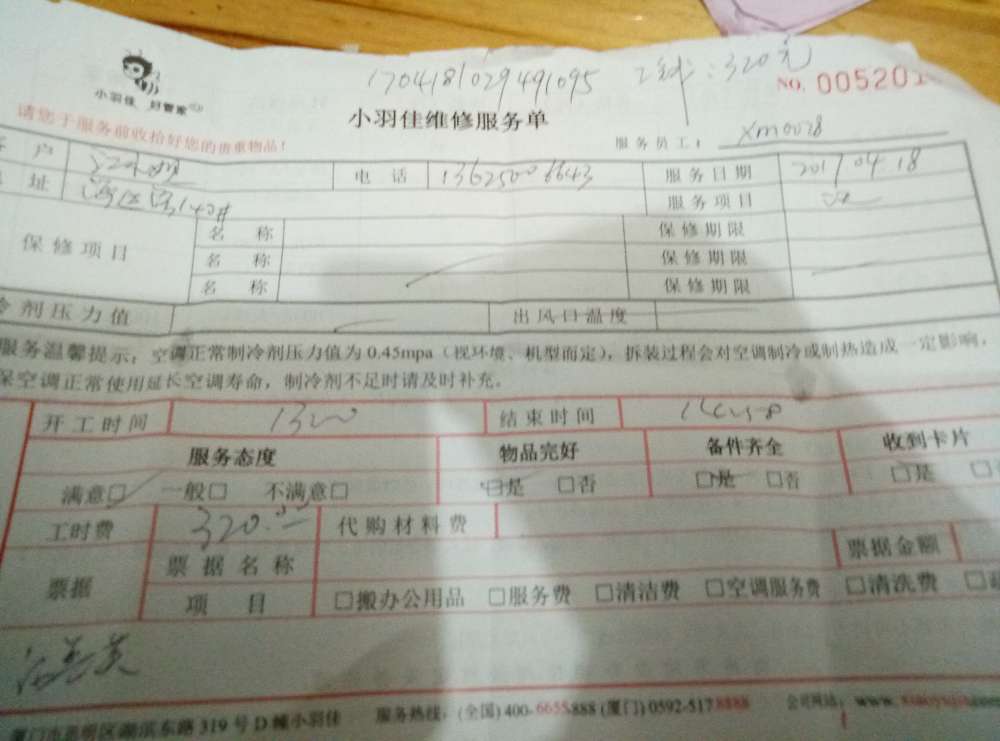 170418102949 1095 :320元
小羽佳 好管家
NO. 005201
小羽佳维修服务单
请您于服务前收拾好您的贵重物品!
服务员工: xm0028
户 电话 13625006643 服务日期 2017.04.18
址 服务项目
保修项目 名称 保修期限
名称 保修期限
名称 保修期限
冷剂压力值 出风口温度
服务温馨提示:空调正常制冷剂压力值为0.45mpa(视环境、机型而定),拆装过程会对空调制冷或制热造成一定影响,
保空调正常使用延长空调寿命,制冷剂不足时请及时补充。
开工时间 1300 结束时间
服务态度 物品完好 备件齐全 收到卡片
满意□ 一般□ 不满意□ □是 □否 □是 □否 □是
工时费 320.00 代购材料费
票据 票据名称 票据金额
项目 □搬办公用品 □服务费 □清洁费 □空调服务费 □清洗费
厦门市思明区湖滨东路319号D幢小羽佳 服务热线:(全国)400-6655888 (厦门)0592-5178888 公司网站: www.